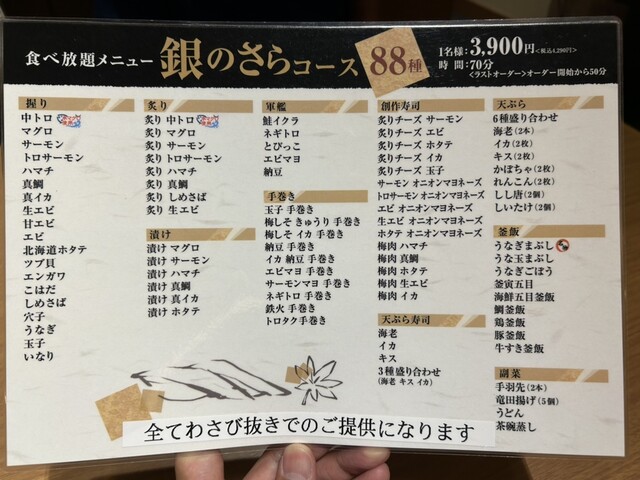 食べ放題メニュー 銀のさらコース 88種
1名様:3,900円<税込4,290円>
時間:70分
<ラストオーダー>オーダー開始から50分
握り
中トロ
マグロ
サーモン
トロサーモン
ハマチ
真鯛
真イカ
生エビ
甘エビ
エビ
北海道ホタテ
ツブ貝
エンガワ
こはだ
しめさば
穴子
うなぎ
玉子
いなり
炙り
炙り 中トロ
炙り マグロ
炙り サーモン
炙り トロサーモン
炙り ハマチ
炙り 真鯛
炙り しめさば
炙り 生エビ
漬け
漬け マグロ
漬け サーモン
漬け ハマチ
漬け 真鯛
漬け 真イカ
漬け ホタテ
軍艦
鮭イクラ
ネギトロ
とびっこ
エビマヨ
納豆
手巻き
玉子 手巻き
梅しそ きゅうり 手巻き
梅しそ イカ 手巻き
納豆 手巻き
イカ 納豆 手巻き
エビマヨ 手巻き
サーモンマヨ 手巻き
ネギトロ 手巻き
鉄火 手巻き
トロタク手巻き
創作寿司
炙りチーズ サーモン
炙りチーズ エビ
炙りチーズ ホタテ
炙りチーズ イカ
炙りチーズ 玉子
サーモン オニオンマヨネーズ
トロサーモン オニオンマヨネーズ
エビ オニオンマヨネーズ
生エビ オニオンマヨネーズ
ホタテ オニオンマヨネーズ
梅肉 ハマチ
梅肉 真鯛
梅肉 ホタテ
梅肉 生エビ
梅肉 イカ
天ぷら寿司
海老
イカ
キス
3種盛り合わせ
(海老 キス イカ)
天ぷら
6種盛り合わせ
海老(2本)
イカ(2枚)
キス(2枚)
かぼちゃ(2枚)
れんこん(2枚)
しし唐(2個)
しいたけ(2個)
釜飯
うなぎまぶし
うな玉まぶし
うなぎごぼう
釜寅五目
海鮮五目釜飯
鯛釜飯
鶏釜飯
豚釜飯
牛すき釜飯
副菜
手羽先(2本)
竜田揚げ(5個)
うどん
茶碗蒸し
全てわさび抜きでのご提供になります